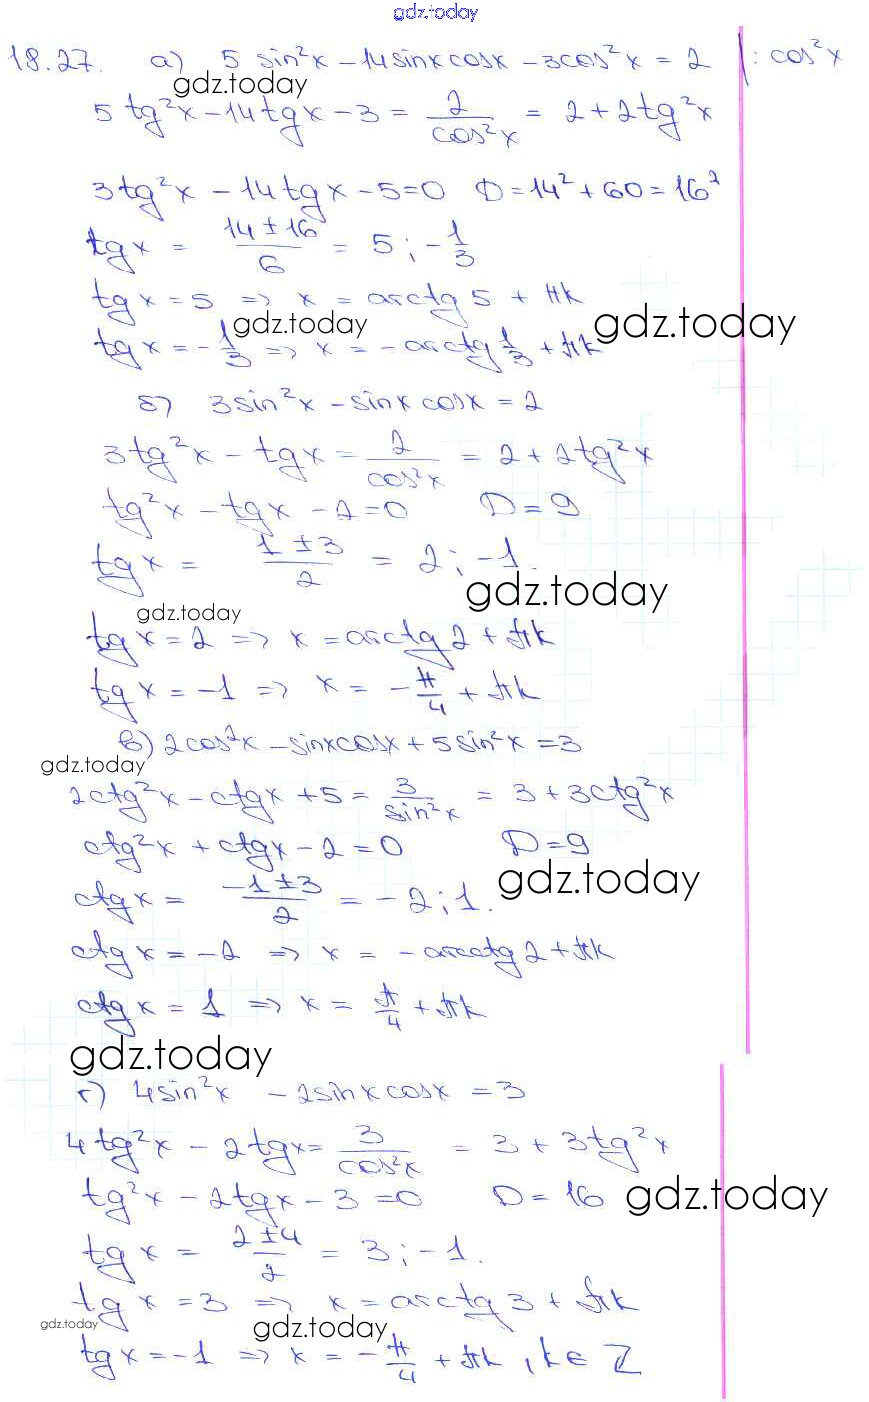 gdz.today
18.27. а) 5 sin²x - 14 sinx cosx - 3cos²x = 2 | : cos²x
gdz.today
5 tg²x - 14 tgx - 3 = 2/cos²x = 2 + 2tg²x
3tg²x - 14tgx - 5 = 0 D = 14² + 60 = 16²
tgx = (14 ± 16)/6 = 5; -1/3
tgx = 5 => x = arctg 5 + πk
gdz.today gdz.today
tgx = -1/3 => x = -arctg 1/3 + πk
б) 3sin²x - sinx cosx = 2
3tg²x - tgx = 2/cos²x = 2 + 2tg²x
tg²x - tgx - 2 = 0 D = 9
tgx = (1 ± 3)/2 = 2; -1.
gdz.today
gdz.today
tgx = 2 => x = arctg 2 + πk
tgx = -1 => x = -π/4 + πk
в) 2cos²x - sinxcosx + 5sin²x = 3
gdz.today
2ctg²x - ctgx + 5 = 3/sin²x = 3 + 3ctg²x
ctg²x + ctgx - 2 = 0 D = 9
gdz.today
ctgx = (-1 ± 3)/2 = -2; 1.
ctgx = -2 => x = -arcctg 2 + πk
ctgx = 1 => x = π/4 + πk
gdz.today
г) 4sin²x - 2sinx cosx = 3
4tg²x - 2tgx = 3/cos²x = 3 + 3tg²x
tg²x - 2tgx - 3 = 0 D = 16
gdz.today
tgx = (2 ± 4)/2 = 3; -1.
tgx = 3 => x = arctg 3 + πk
gdz.today gdz.today
tgx = -1 => x = -π/4 + πk, k ∈ Z